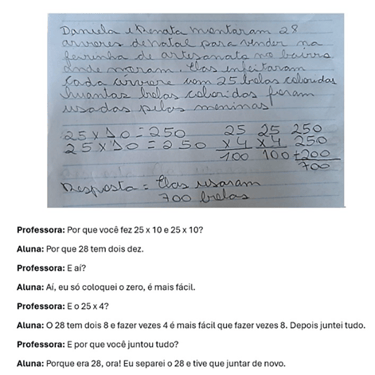 Daniela e Renata montaram 28
arvores de natal para vender na
feirinha de artesanato no bairro
onde moram. Elas enfeitaram
cada arvore com 25 bolas coloridas
Quantas bolas coloridas foram
usadas pelas meninas?
25 x 10 = 250 25 25 250
25 x 10 = 250 x4 x4 250
100 100 +200
700
Resposta = Elas usaram
700 bolas
Professora: Por que você fez 25 x 10 e 25 x 10?
Aluna: Por que 28 tem dois dez.
Professora: E aí?
Aluna: Aí, eu só coloquei o zero, é mais fácil.
Professora: E o 25 x 4?
Aluna: O 28 tem dois 8 e fazer vezes 4 é mais fácil que fazer vezes 8. Depois juntei tudo.
Professora: E por que você juntou tudo?
Aluna: Porque era 28, ora! Eu separei o 28 e tive que juntar de novo.